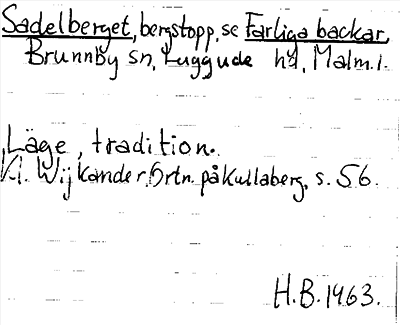 Sadelberget, bergstopp, se Farliga backar,
Brunnby sn, Luggude hd, Malm. l.
Läge, tradition.
Kl. Wijkander, Ortn. på Kullaberg, s. 56.
H.B. 1963.